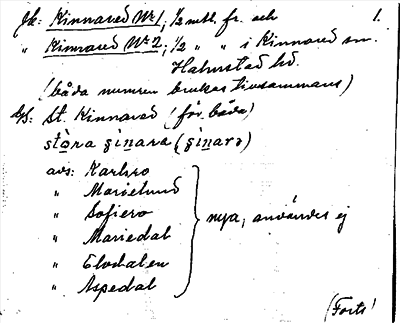 Jk: Kinnared Nr 1, 1/2 mtl. fr. och 1.
" Kinnared Nr 2, 1/2 " " i Kinnared sn.
Halmstad hd.
(båda numren brukas tillsammans)
bs: St. Kinnarad (för båda)
stòra ʒinara (ʒinarə)
avs: Karlsro
" Marielund
" Sofiero
" Mariedal
" Elvdalen
" Aspedal
nya, användes ej
(Forts!